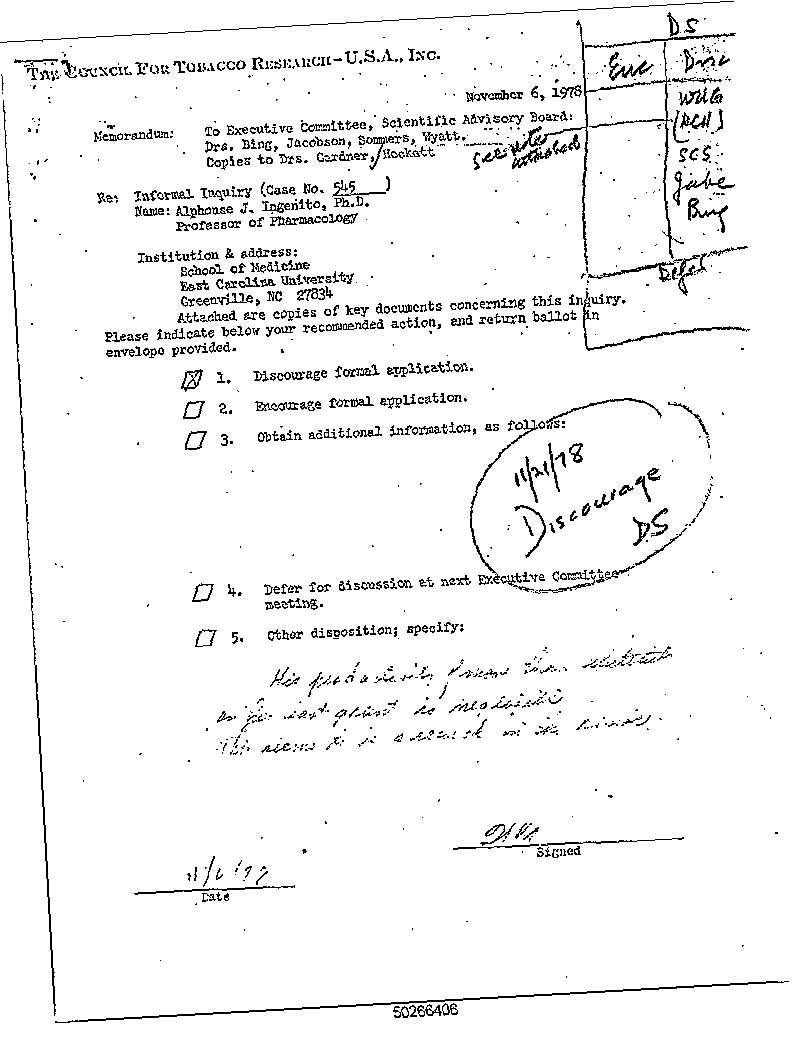 DS
THE COUNCIL FOR TOBACCO RESEARCH-U.S.A., INC.
Enc
Disc
November 6, 1978
WUG
(RCH)
SCS
Jake
Bing
Defer
Memorandum: To Executive Committee, Scientific Advisory Board:
Drs. Bing, Jacobson, Sommers, Wyatt.
Copies to Drs. Gardner, Hockett
see note
attached
Re: Informal Inquiry (Case No. 545)
Name: Alphonse J. Ingenito, Ph.D.
Professor of Pharmacology
Institution & address:
School of Medicine
East Carolina University
Greenville, NC 27834
Attached are copies of key documents concerning this inquiry.
Please indicate below your recommended action, and return ballot in
envelope provided.
1. Discourage formal application.
2. Encourage formal application.
3. Obtain additional information, as follows:
11/21/78
Discourage
DS
4. Defer for discussion at next Executive Committee
meeting.
5. Other disposition; specify:
His productivity more than abstracts
last grant is negligible
This seems to
Signed
Date
50266406